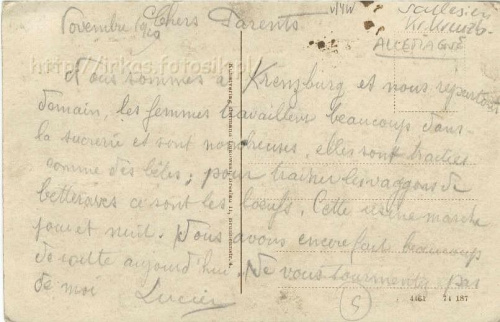 Novembre 1919 Chers Parents
Schlesien
Kr. Kreuzb.
ALLEMAGNE
http://irkos.fotosik.pl
Nous sommes à Kreuzburg et nous repartons
demain, les femmes travaillent beaucoup dans
la sucrerie et sont nombreuses, elles sont traitées
comme des bêtes; pour traîner les waggons de
betteraves ce sont les bœufs. Cette usine marche
jour et nuit. Nous avons encore fait beaucoup
de route aujourd'hui. Ne vous tourmentez pas
de moi Lucien
5
4461 74 187